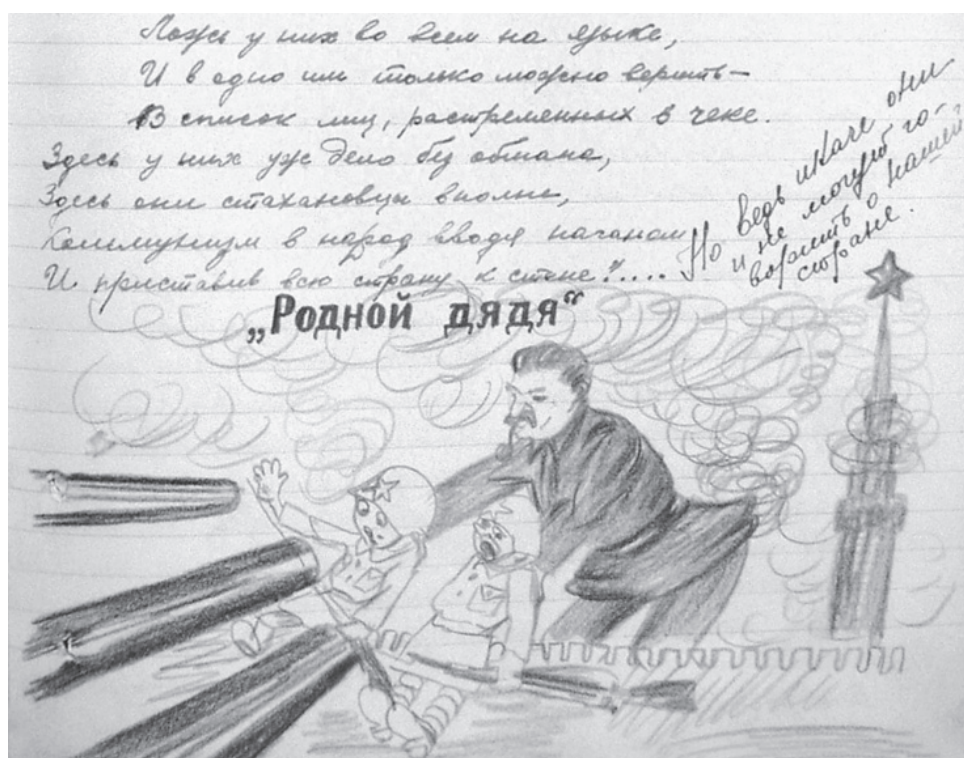 Ложь у них во всем на языке,
И в одно им только можно верить –
В список лиц, растреленных в чеке.
Здесь у них уж дело без обмана,
Здесь они стахановцы вполне,
Коммунизм в народ вводя наганом
И приставив всю страну к стене!"....
Но ведь иначе они
и не могут го-
ворить о нашей
стране.
„Родной дядя“